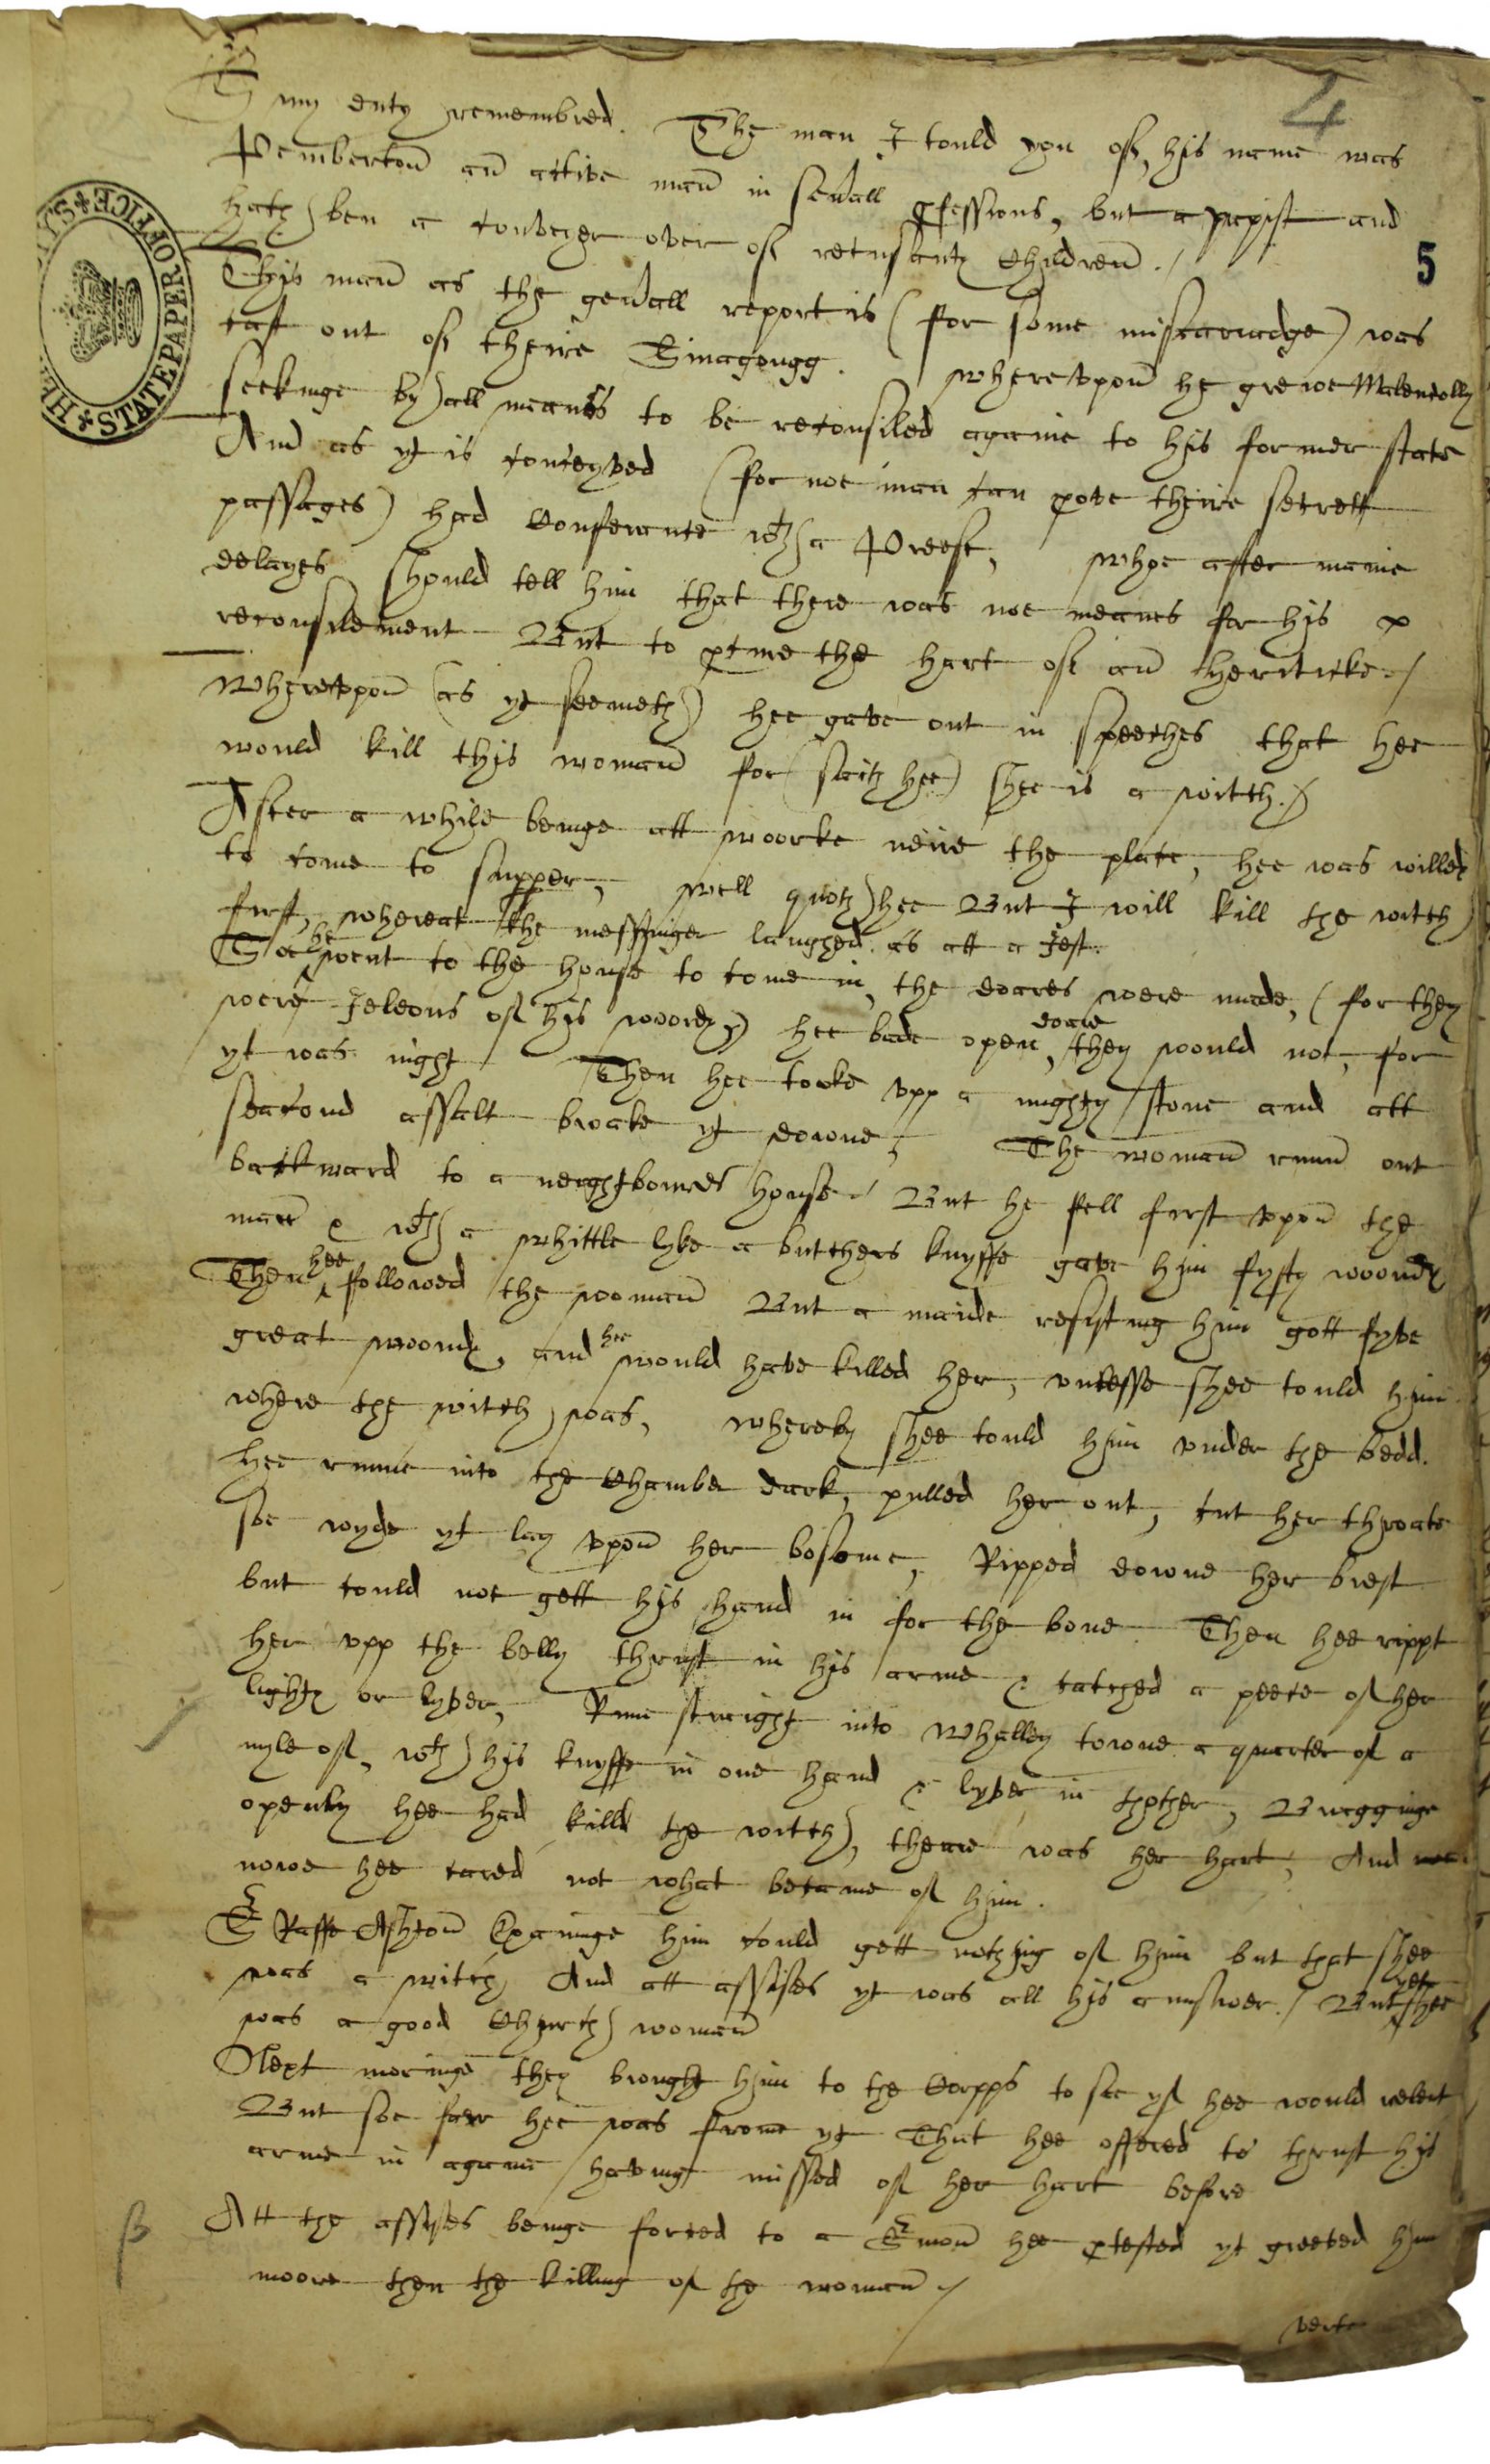 4
5
STATE PAPER OFFICE
Sr my duty remembred. The man I tould you off, his name was
Pembertoñ añ active mañ in seuall pfessions, but a papist and
hath ben a conveyer over off recusantℯ Childreñ./
This mañ as the genall report is (for some miscariadge) was
cast out off theire Sinagougg. Wherevpoñ he grewe Malencolly
seekinge by all meanes to be reconsiled againe to his former state
And as yt is conceyved (for noe man can prove theire secrett
passages) had Conferance wth a Preest, Whoe after manie
delayes should tell him that there was noe meanes for his
reconsilement But to pcure the hart off añ heriticke./
Wherevpoñ (as yt seemeth) hee gave out in speeches that hee
would kill this womañ for (saith hee) shee is a witch./
After a while beinge att woorke neire the place, hee was willed
to come to supper, Well quoth hee But I will kill the witch
first, whereat the messinger laughed as att a Jest.
Soe he went to the house to come in, the doares were made, (for they
were Jeleous off his wordℯ) hee bade open doare they would not, for
yt was night Then hee tooke vpp a mighty stone and att
seacond assalt broake yt downe, The womañ runñ out
backward to a neaghboures house. But he fell first vpoñ the
mañ & wth a whittle lyke a butchers knyffe gave him fyfty woondℯ
Then hee followed the woomañ But a maide resisting him gott fyve
great woondℯ, and hee would have killed her, vnlesse shee tould him
where the witch was, whereby shee tould him vnder the bedd.
hee runne into the Chamber dark, pulled her out, cut her throate
soe wyde yt lay vpoñ her bosome, Ripped downe her brest
but could not gett his hand in for the bone Then hee rippt
her vpp the belly thrust in his arme & catched a peece off her
lightℯ or lyver, Runne straight into Whalley towne a quarter off a
myle off, wth his knyffe in one hand & lyver in thother, Bragginge
openly hee had killd the witch, theare was her hart, And
nowe hee cared not what became off him.
Sr Raffe Ashtoñ Examinge him could gett nothing off him but that shee
was a witch, And att assises yt was all his answer./ But yett shee
was a good Church womañ
Next morninge they brought him to the Corpps to see yff hee would relent
But soe farr hee was frome yt That hee offered to thrust his
arme in againe havinge missed off her hart before
Att the assyses beinge forced to a Smoñ hee ptested yt greeved him
moore then the killing off the womañ./
verte